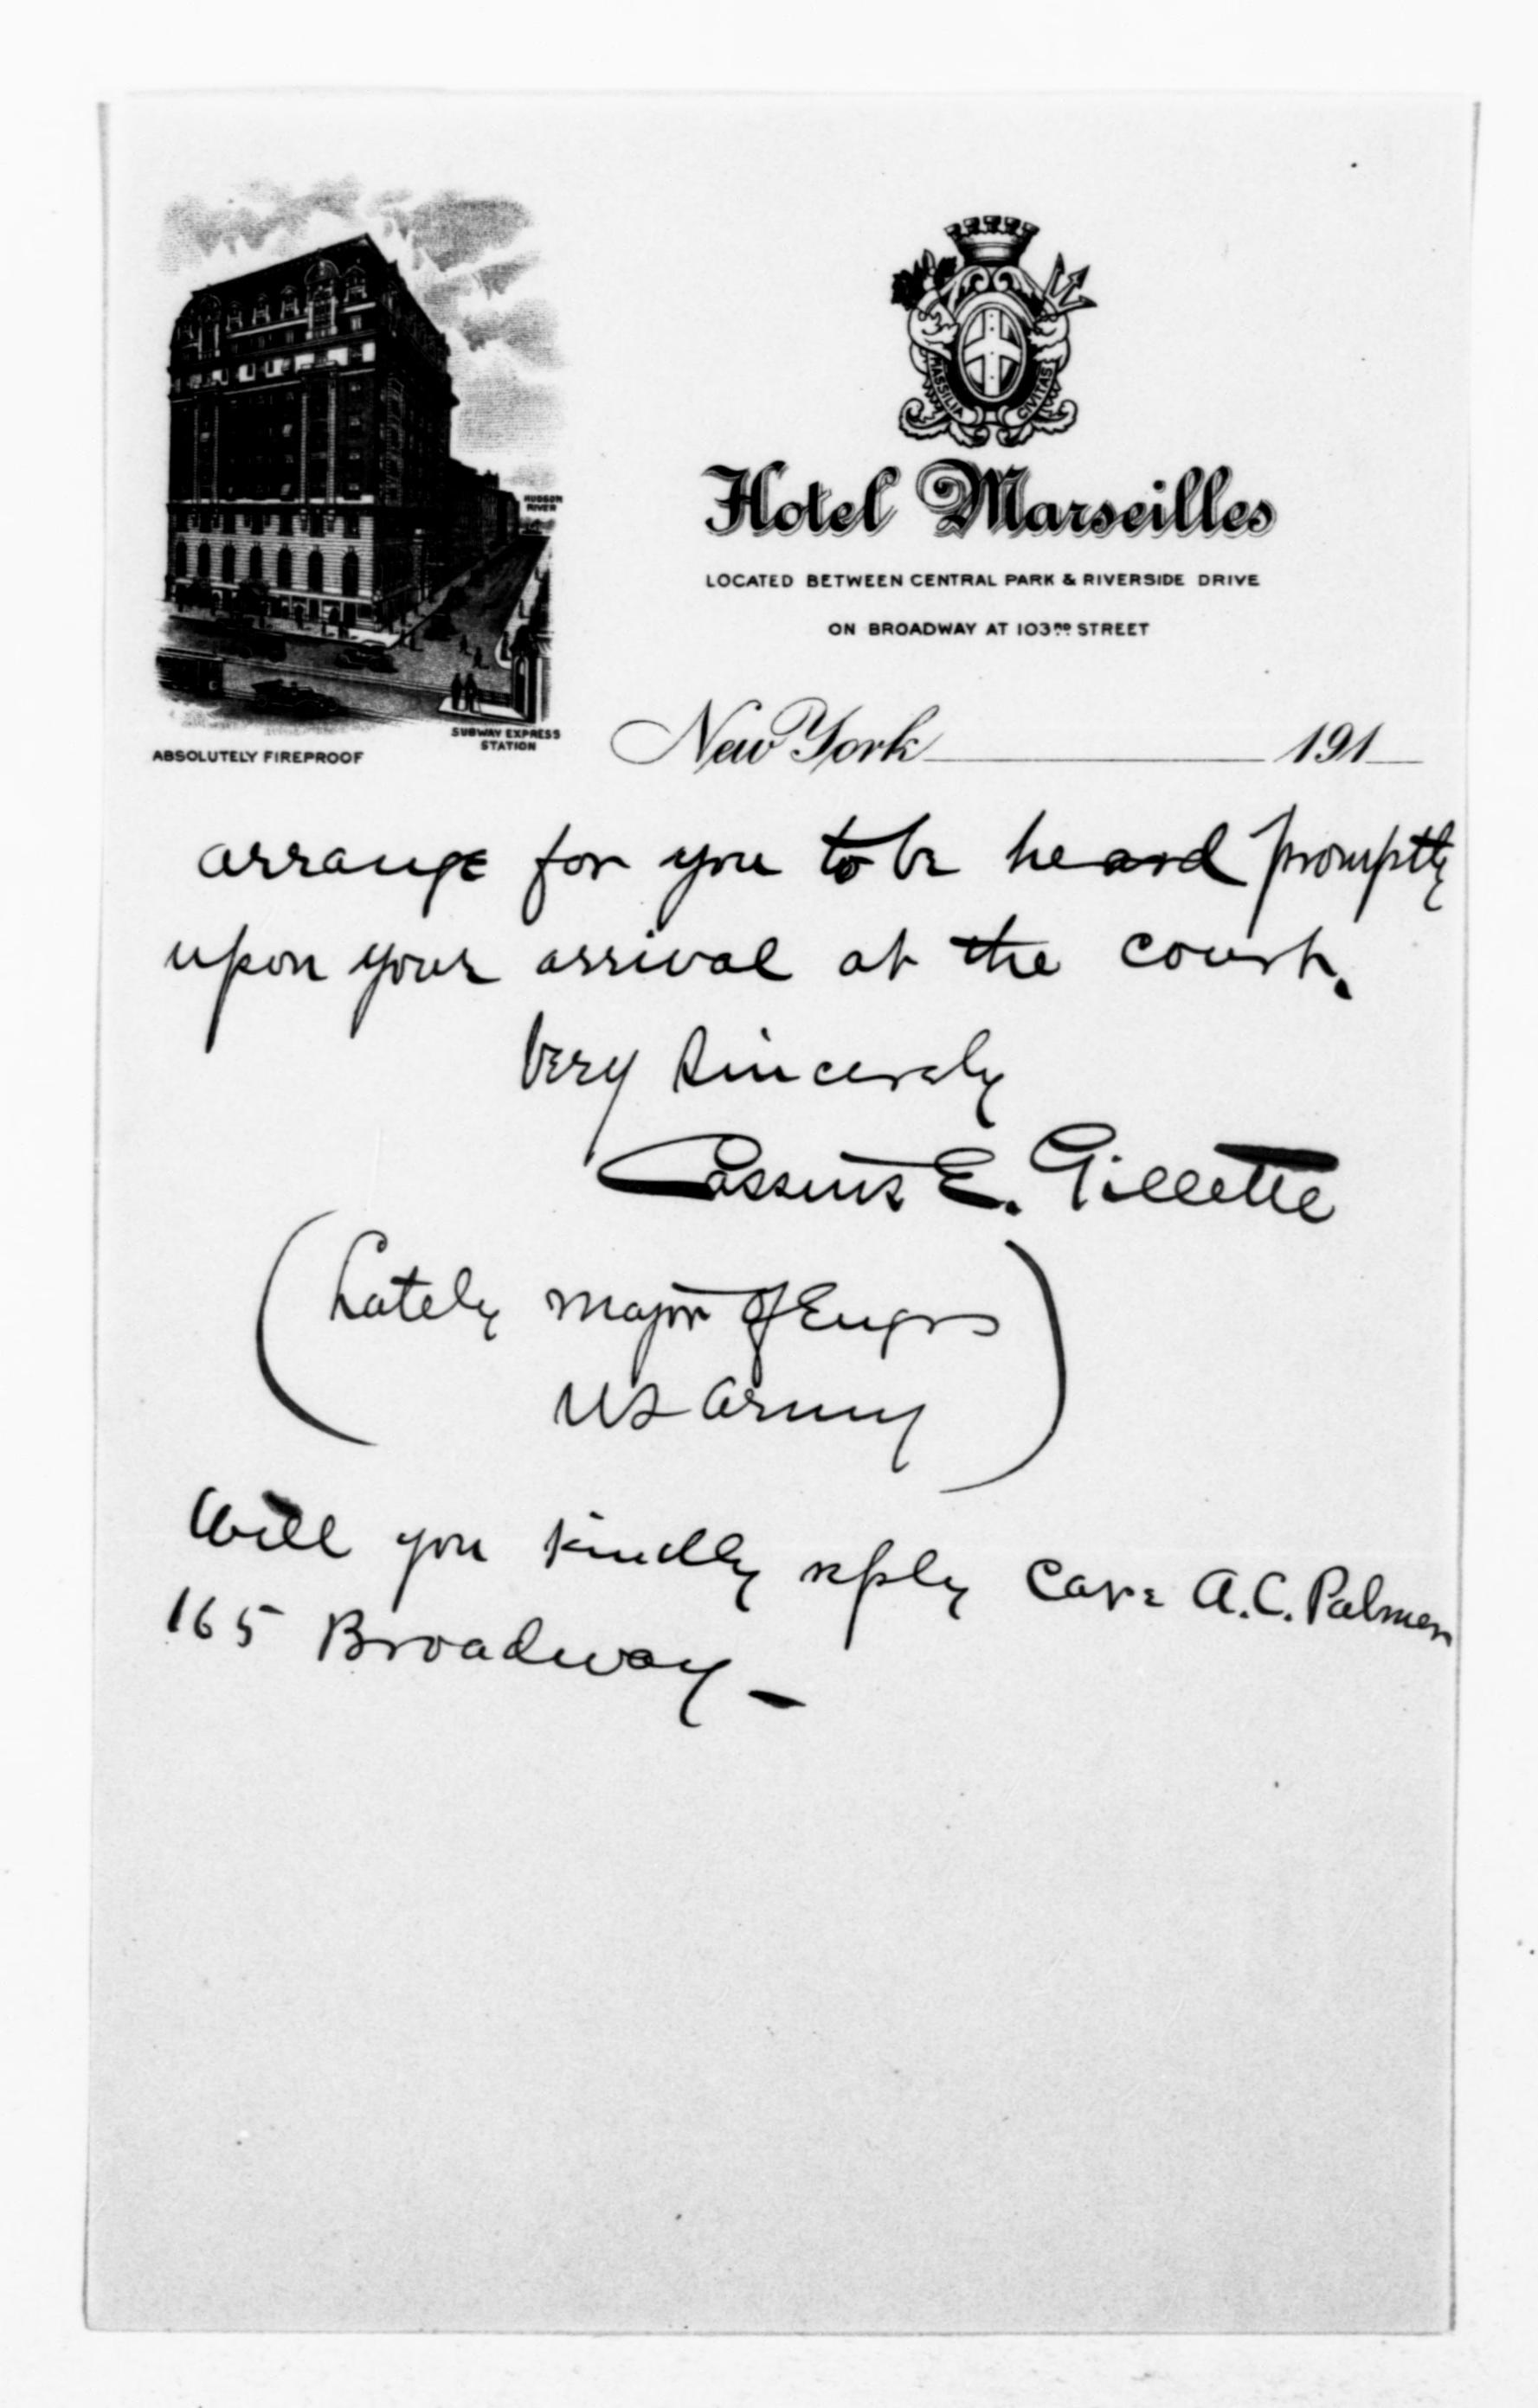 HUDSON
RIVER
SUBWAY EXPRESS
STATION
ABSOLUTELY FIREPROOF
MASSILIA CIVITAS
Hotel Marseilles
LOCATED BETWEEN CENTRAL PARK & RIVERSIDE DRIVE
ON BROADWAY AT 103RD STREET
New York 191
arrange for you to be heard promptly
upon your arrival at the court.
Very sincerely
Cassius E. Gillette
(Lately Major of Engrs
US Army)
Will you kindly reply care A.C. Palmer
165 Broadway_